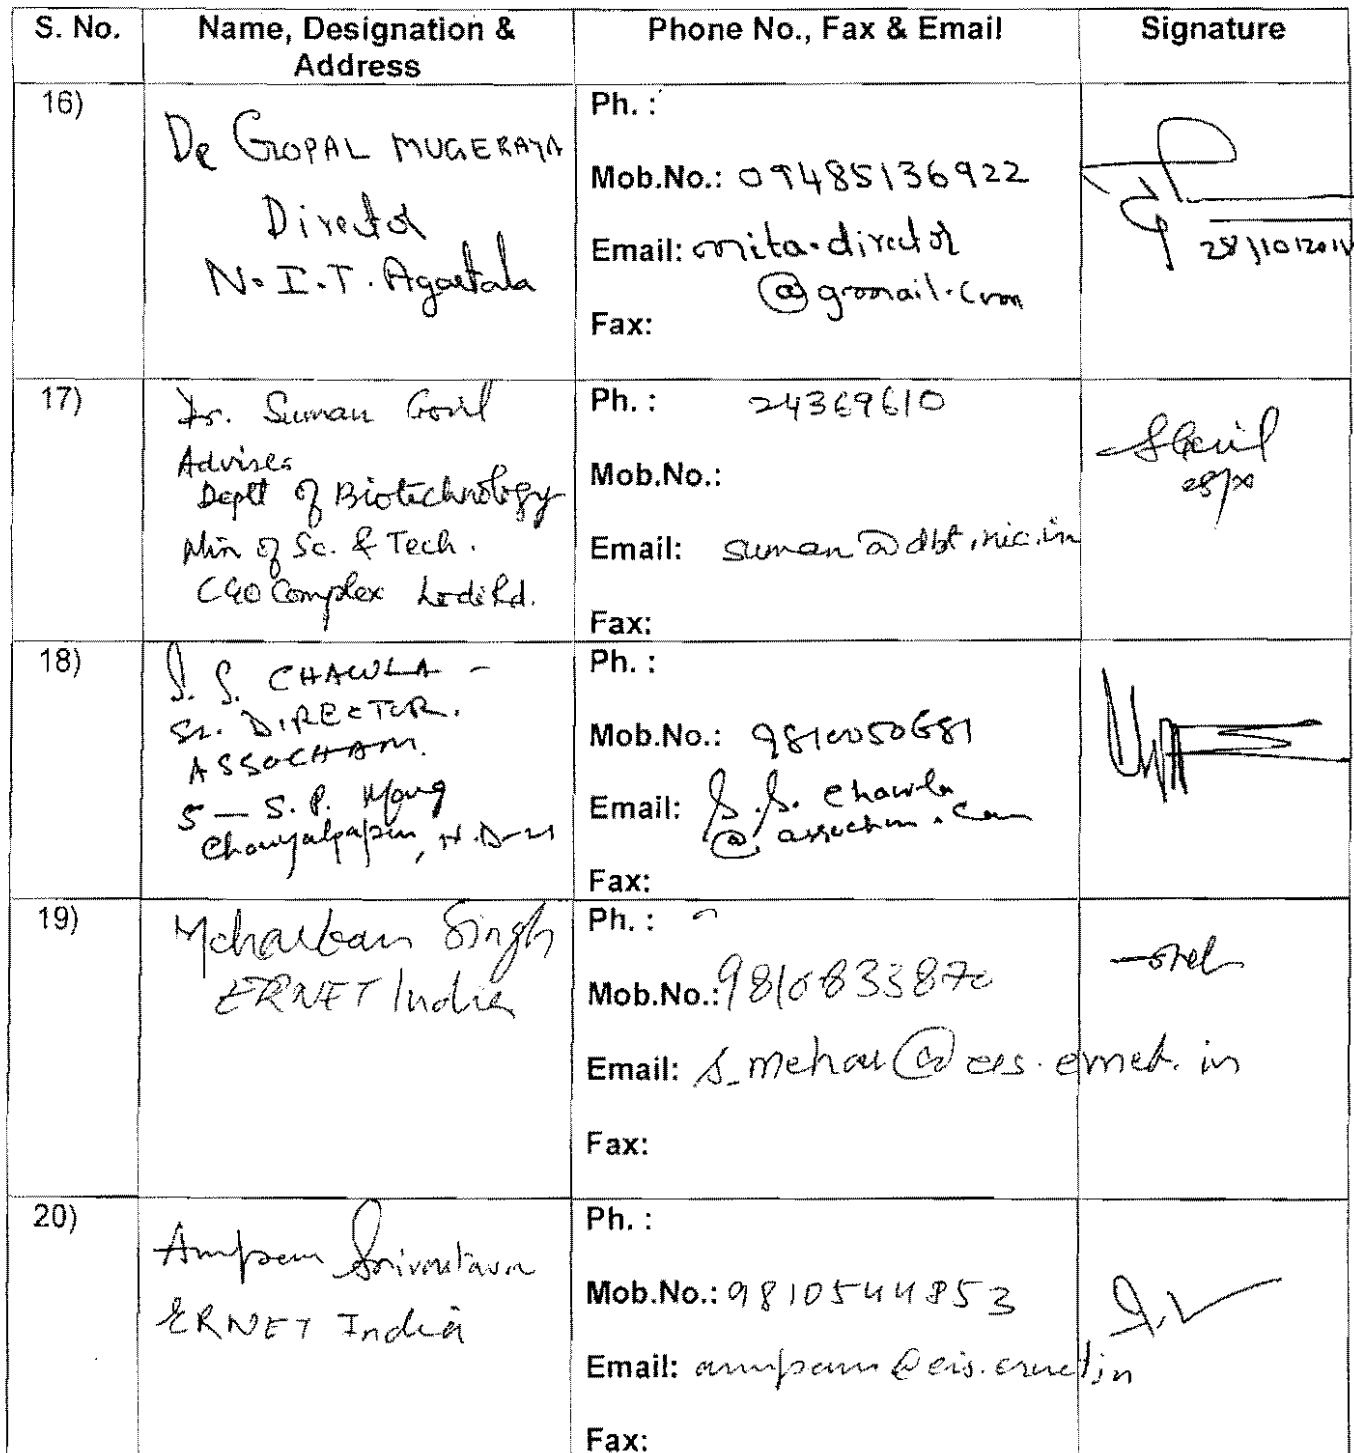 S. No. Name, Designation & Address Phone No., Fax & Email Signature
16)
Dr GOPAL MUGERAYA
Director
N.I.T. Agartala
Ph. :
Mob.No.: 09485136922
Email: nita.director
@gmail.com
Fax:
28/10/2011
17)
Dr. Suman Govil
Adviser
Deptt of Biotechnology
Min of Sc. & Tech.
CGO Complex Lodi Rd.
Ph. : 24369610
Mob.No.:
Email: suman@dbt.nic.in
Fax:
SGovil
18)
S. S. CHAWLA -
Sr. DIRECTOR.
ASSOCHAM.
5 — S. P. Marg
Chanyakyapuri, N.D-21
Ph. :
Mob.No.: 9810050681
Email: S.S. Chawla
@ assocham.com
Fax:
19)
Meharban Singh
ERNET India
Ph. :
Mob.No.: 9810833870
Email: s_mehar@eis.ernet.in
Fax:
20)
Anupam Srivastava
ERNET India
Ph. :
Mob.No.: 9810544853
Email: anupam@eis.ernet.in
Fax: